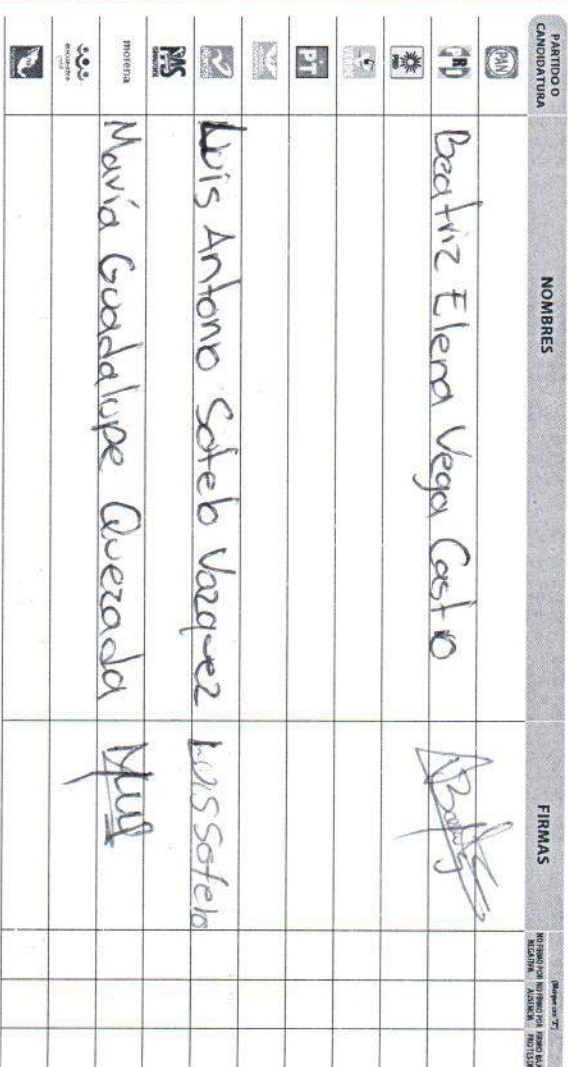 PARTIDO O CANDIDATURA
NOMBRES
FIRMAS
(Marque con "X")
NO FIRMO POR NEGATIVA
NO FIRMO POR AUSENCIA
FIRMO BAJO PROTESTA
PAN
PRI
Beatriz Elena Vega Castro
PRD
VERDE
PT
PAS
Luis Antonio Sotelo Vazquez
Luis Sotelo
morena
María Guadalupe Quezada
encuentro